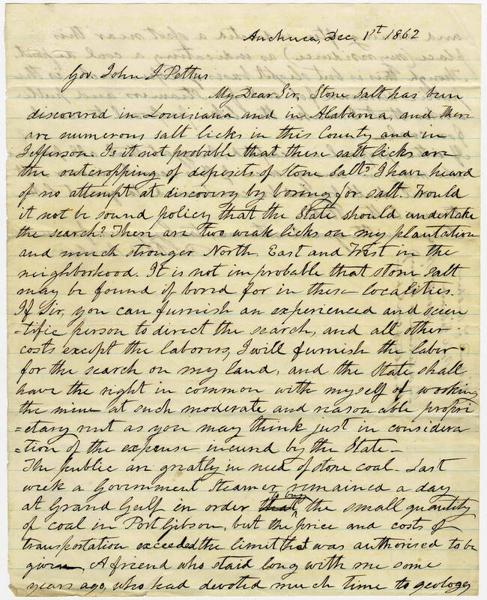 Anchuca, Dec 1st 1862
Gov. John J Pettus
My Dear Sir, Stone salt has been
discovered in Louisiana and in Alabama, and there
are numerous salt licks in this County and in
Jefferson. Is it not probable that these salt licks are
the outcropping of deposits of stone salt? I have heard
of no attempt at discovery by boring for salt. Would
it not be sound policy that the State should undertake
the search? There are two weak licks on my plantation
and much stronger North, East and West in the
neighborhood. It is not improbable that stone salt
may be found if bored for in these localities.
If Sir, you can furnish an experienced and scien
=tific person to direct the search, and all other
costs except the laborers, I will furnish the labor
for the search on my land, and the State shall
have the right in common with myself of working
the mine at such moderate and reasonable propri
=etary rent as you may think just in considera
=tion of the expense incured by the State_
The public are greatly in need of stone coal. Last
week a Government Steamer remained a day
at Grand Gulf in order to buy the small quantity
of coal in Port Gibson, but the price and costs of
transportation exceeded the limit that was authorised to be
given. A friend who staid long with me some
years ago, who had devoted much time to geology